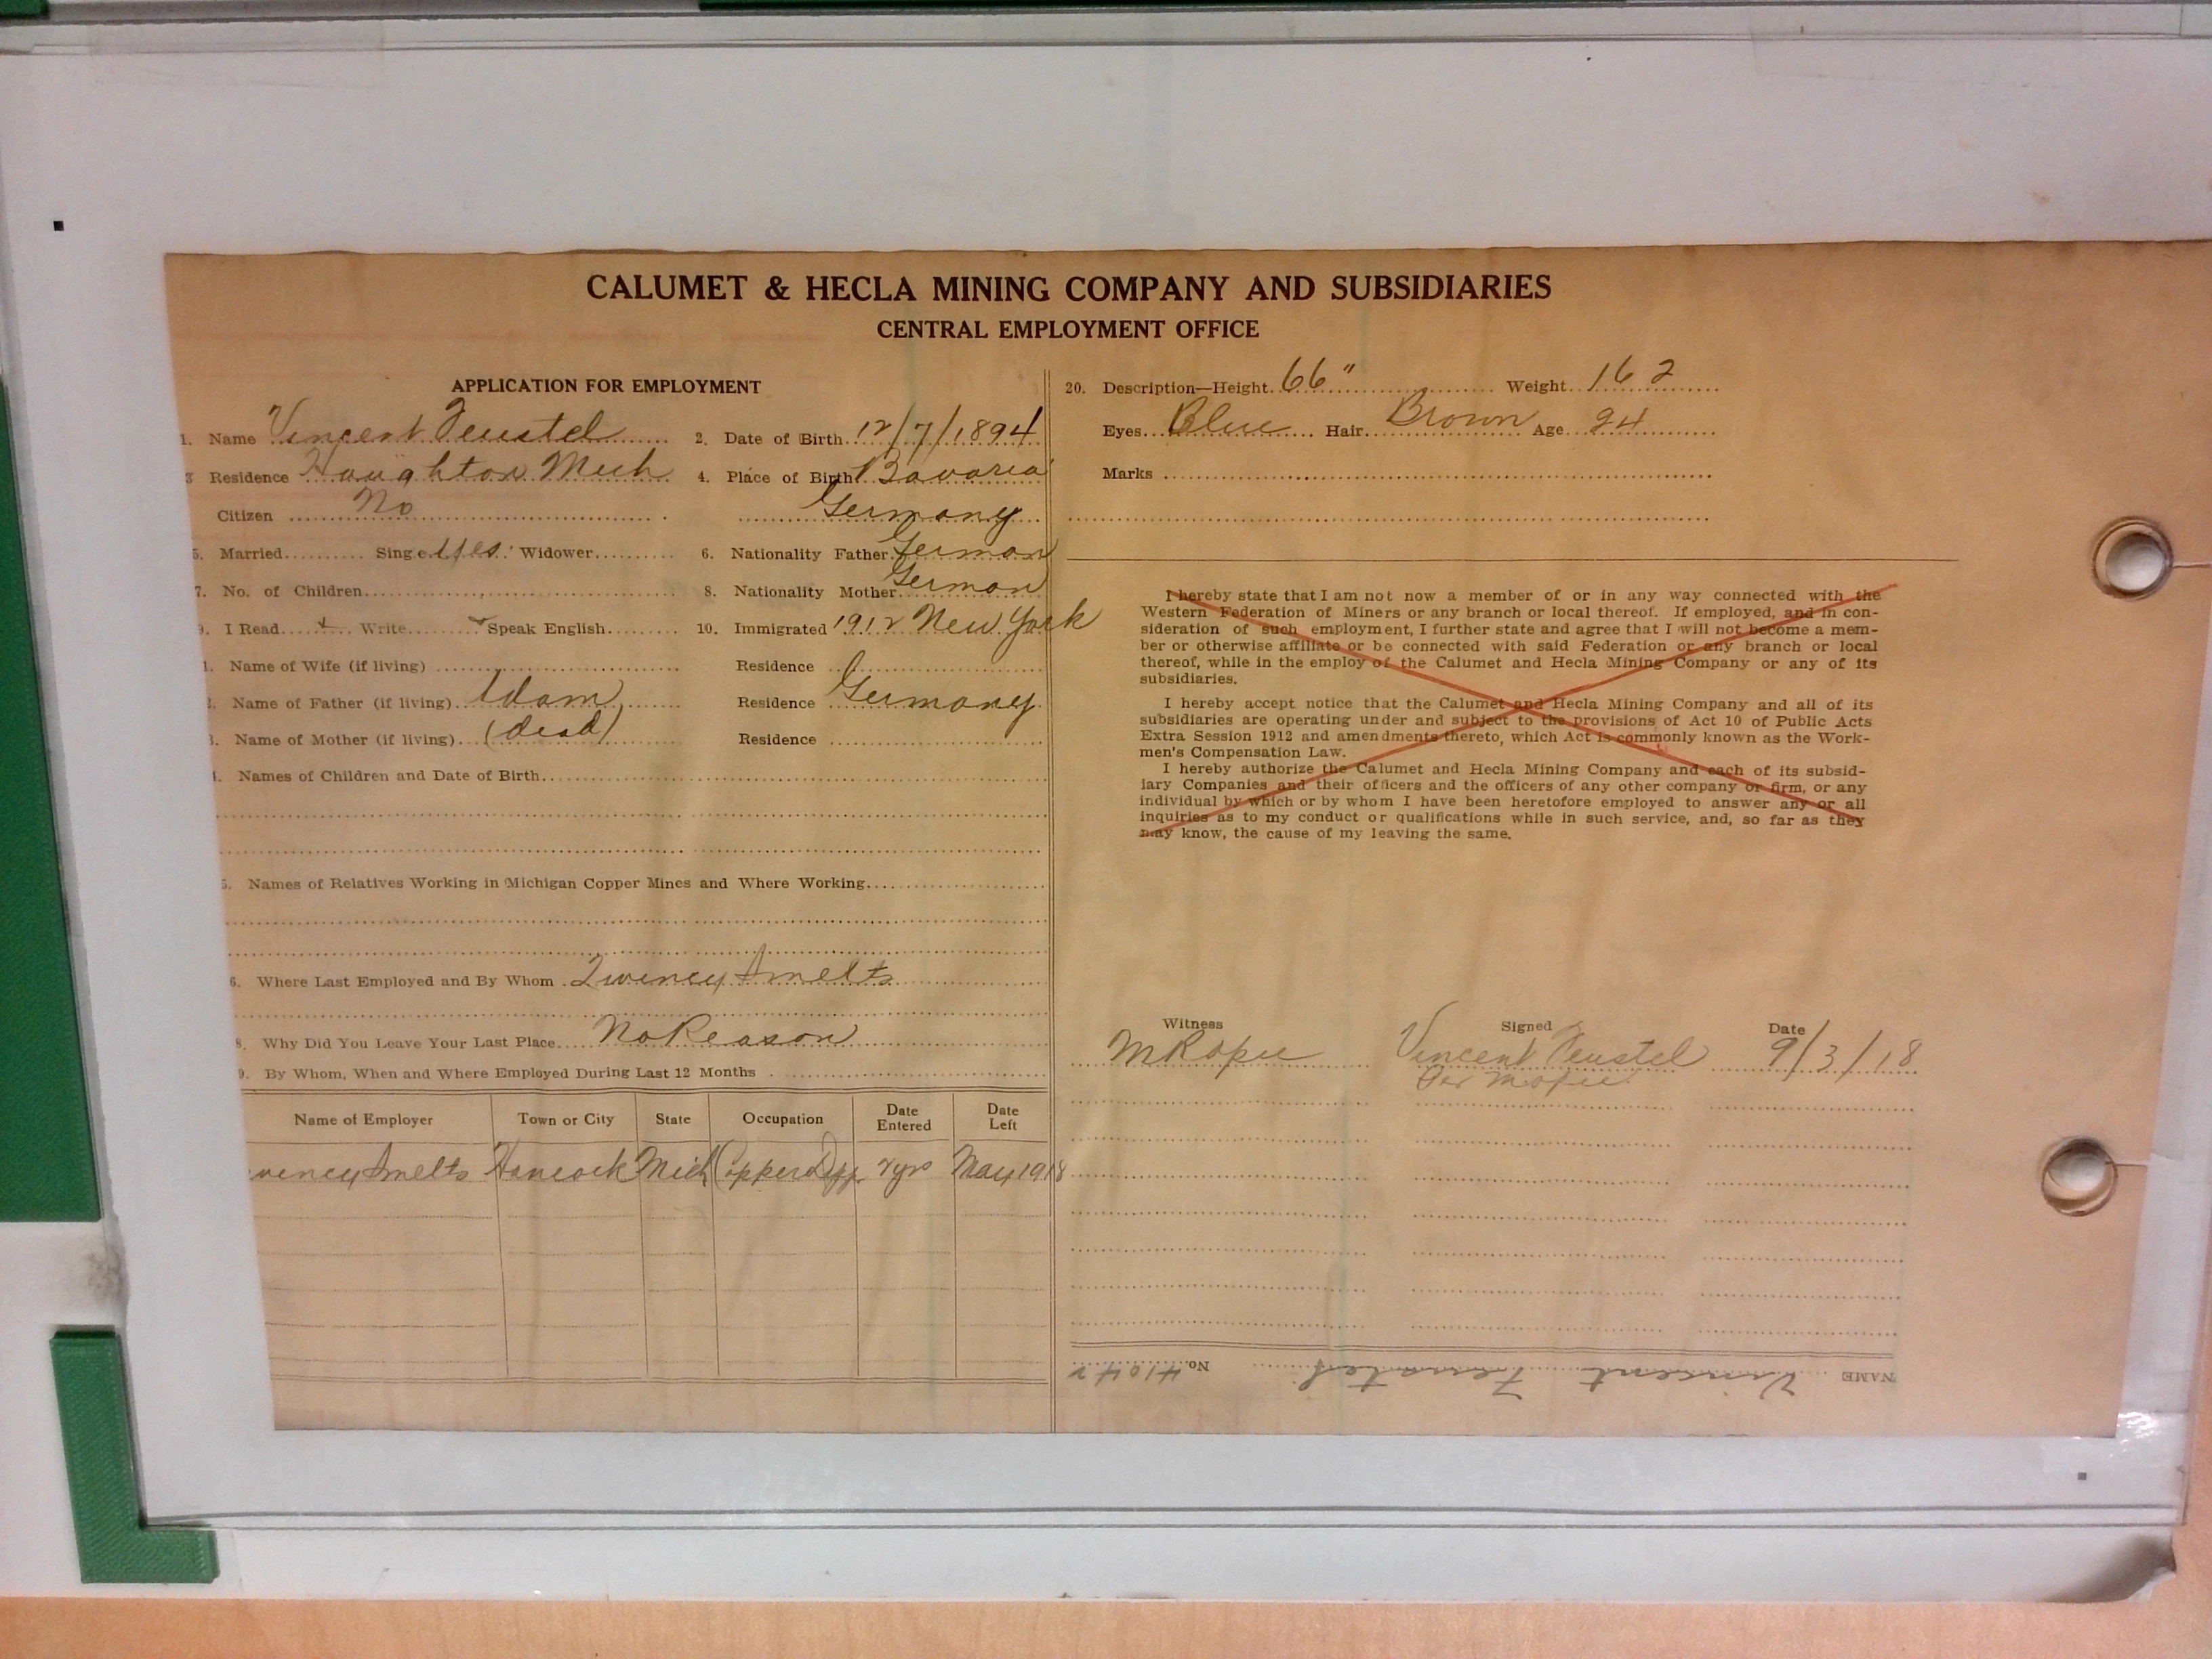 CALUMET & HECLA MINING COMPANY AND SUBSIDIARIES
CENTRAL EMPLOYMENT OFFICE
APPLICATION FOR EMPLOYMENT
1. Name Vincent Feustel 2. Date of Birth 12/7/1894
3 Residence Houghton Mich 4. Place of Birth Bavaria
Citizen No Germany
5. Married Single Yes Widower 6. Nationality Father German
7. No. of Children 8. Nationality Mother German
9. I Read Write Speak English 10. Immigrated 1912 New York
1. Name of Wife (if living) Residence
2. Name of Father (if living) Adam Residence Germany
3. Name of Mother (if living) (dead) Residence
4. Names of Children and Date of Birth
5. Names of Relatives Working in Michigan Copper Mines and Where Working
6. Where Last Employed and By Whom Quincy Smelts
8. Why Did You Leave Your Last Place No Reason
9. By Whom, When and Where Employed During Last 12 Months
Name of Employer Town or City State Occupation Date Entered Date Left
uincy Smelts Hancock Mich Copper Dipp 2 yrs May 1918
20. Description—Height 66" Weight 162
Eyes Blue Hair Brown Age 24
Marks
I hereby state that I am not now a member of or in any way connected with the
Western Federation of Miners or any branch or local thereof. If employed, and in con-
sideration of such employment, I further state and agree that I will not become a mem-
ber or otherwise affiliate or be connected with said Federation or any branch or local
thereof, while in the employ of the Calumet and Hecla Mining Company or any of its
subsidiaries.
I hereby accept notice that the Calumet and Hecla Mining Company and all of its
subsidiaries are operating under and subject to the provisions of Act 10 of Public Acts
Extra Session 1912 and amendments thereto, which Act is commonly known as the Work-
men's Compensation Law.
I hereby authorize the Calumet and Hecla Mining Company and each of its subsid-
iary Companies and their officers and the officers of any other company or firm, or any
individual by which or by whom I have been heretofore employed to answer any or all
inquiries as to my conduct or qualifications while in such service, and, so far as they
may know, the cause of my leaving the same.
Witness Signed Date
Vincent Feustel 9/3/18
Per
NAME Vincent No. 41042